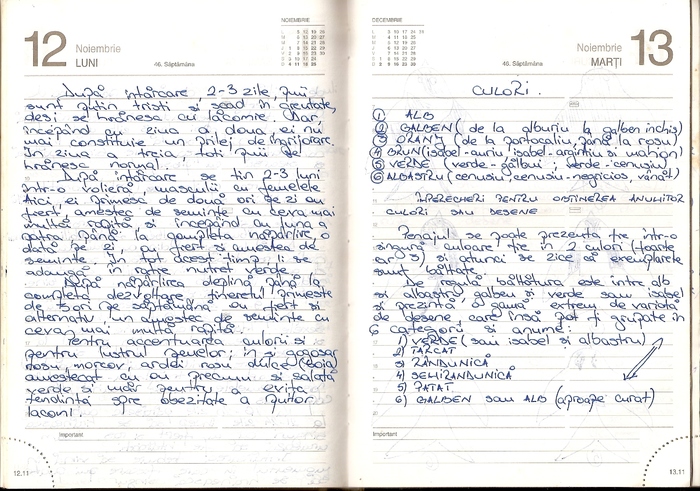 12
Noiembrie
LUNI
46. Săptămâna
NOIEMBRIE
După întărcare 2-3 zile, puii
sunt puțin triști și scad în greutate,
deși se hrănesc cu lăcomie. Dar,
începând cu ziua a doua ei nu
mai constituie un prilej de îngrijorare.
În ziua a treia, toți puii se
hrănesc normal.
După întărcare se țin 2-3 luni
într-o volieră, masculii cu femelele
Aici, ei primesc de două ori pe zi ou
fiert, amestec de semințe cu ceva mai
multă rapiță și începând cu luna a
patra până la completa năpârlire o
dată pe zi ou fiert și amestec de
semințe. În tot acest timp, li se
adaugă în rație nutreț verde.
După năpârlirea deplină până la
completa dezvoltare, tineretul primește
de 3 ori pe săptămână ou fiert și
alternativ un amestec de semințe cu
ceva mai multă rapiță.
Pentru accentuarea culorii și
pentru lustrul penelor; in și gogoșar
roșu, morcov, ardei roșu dulce (boia)
amestecat cu ou precum și salată
verde și măr pentru a evita
tendința spre obezitate a puilor
lacomi.
Important
12.11
DECEMBRIE
46. Săptămâna
Noiembrie
MARȚI
13
CULORI.
1 ALB
2 GALBEN (de la alburiu la galben închis)
3 ORANJ (de la portocaliu până la roșu)
4 BRUN (isabel-auriu, isabel-argintiu și maron)
5 VERDE (verde-gălbui, verde-cenușiu)
6 ALBASTRU (cenușiu, cenușiu-negricios, vânăt)
ÎMPERECHERI PENTRU OBȚINEREA ANUMITOR
CULORI SAU DESENE
Penajul se poate prezenta fie într-o
singură culoare fie în 2 culori (foarte
rar 3) și atunci se zice că exemplarele
sunt bălțate.
De regulă bălțătura este între alb
și albastru, galben și verde sau isabel
și prezintă o gamă extrem de variată
de desene care însă pot fi grupate în
6 categorii și anume:
1) VERDE (sau isabel și albastru)
2) TĂRCAT
3) RÂNDUNICĂ
4) SEMIRÂNDUNICĂ
5) PĂTAT
6) GALBEN sau ALB (aproape curat)
Important
13.11